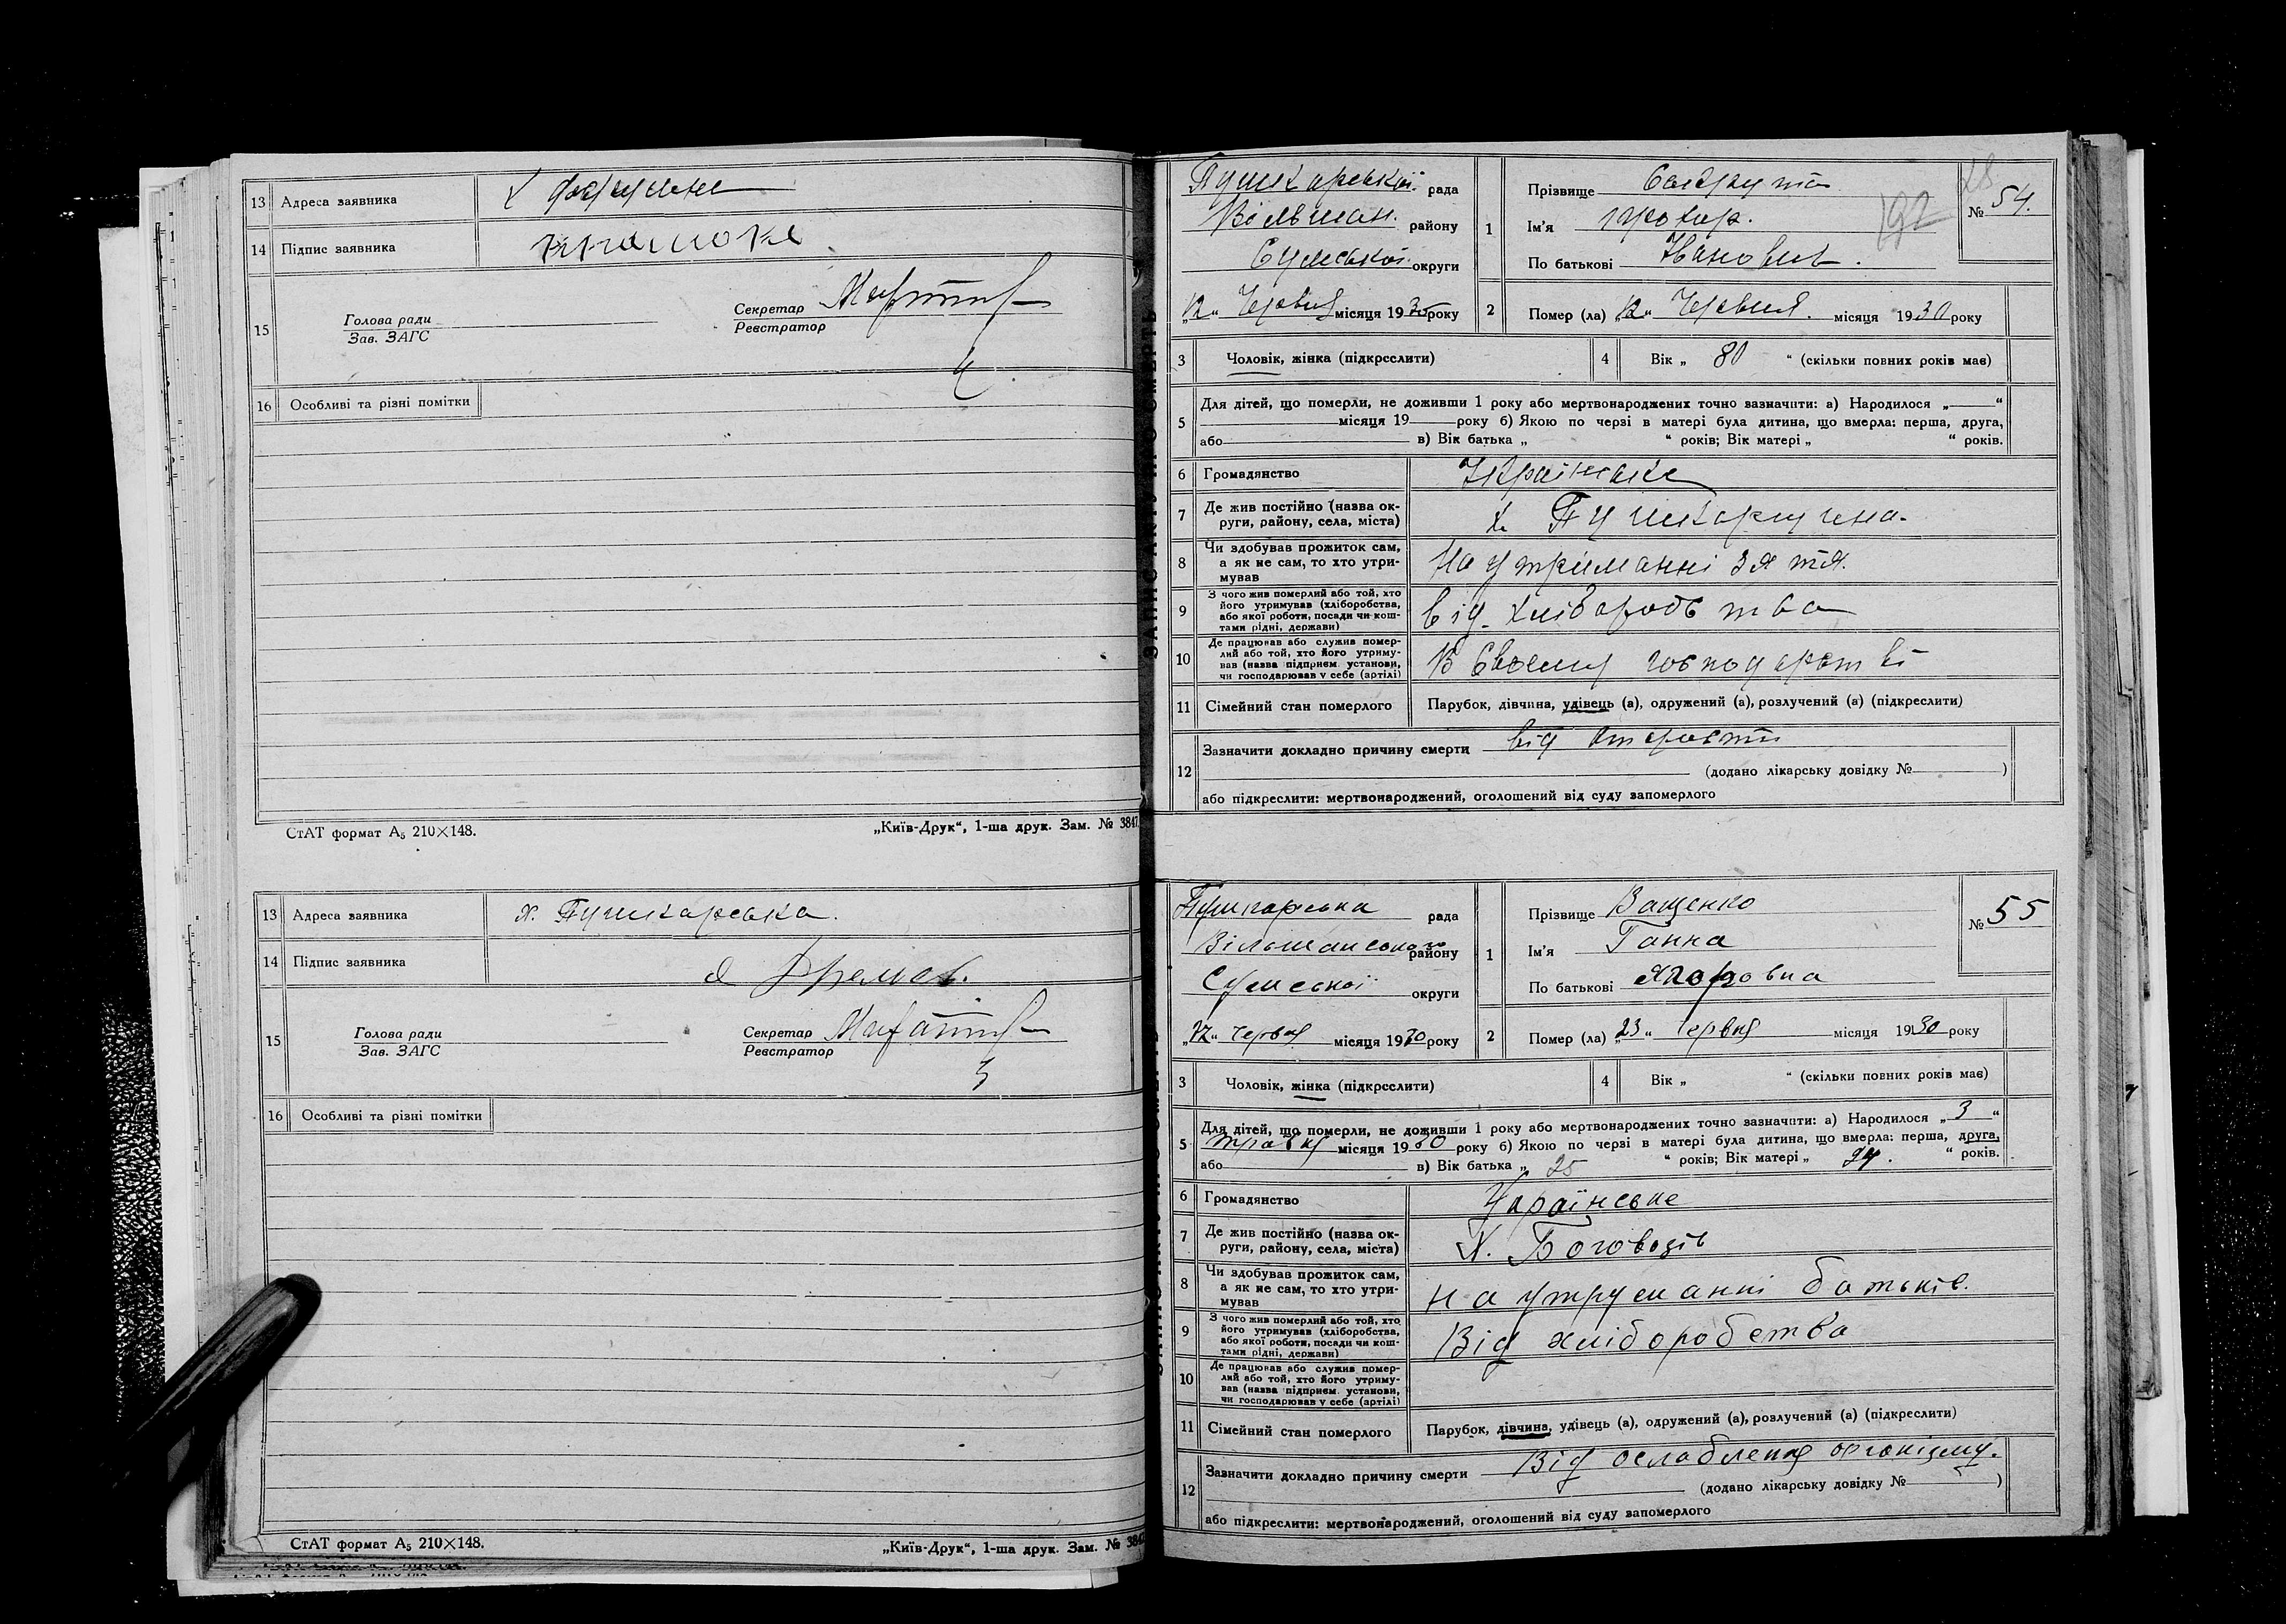 13 Адреса заявника х
14 Підпис заявника
15 Голова ради
Зав. ЗАГС
Секретар
Реєстратор
16 Особливі та різні помітки
СтАТ формат А5 210×148.
„Київ-Друк“, 1-ша друк. Зам. № 3847.
13 Адреса заявника х. Пушкарська.
14 Підпис заявника
15 Голова ради
Зав. ЗАГС
Секретар
Реєстратор
16 Особливі та різні помітки
СтАТ формат А5 210×148.
„Київ-Друк“, 1-ша друк. Зам. № 384
Пушкарської рада
Вільшан. району
Сумської округи
„12“ Червня місяця 1930 року
1 Прізвище
Ім'я Прокор.
По батькові Іванович.
192
28
№ 54.
2 Помер (ла) „12“ Червня. місяця 1930 року
3 Чоловік, жінка (підкреслити)
4 Вік „ 80 “ (скільки повних років має)
5 Для дітей, що померли, не доживши 1 року або мертвонароджених точно зазначити: а) Народилося „ “
місяця 19 року б) Якою по черзі в матері була дитина, що вмерла: перша, друга,
або в) Вік батька „ “ років; Вік матері „ “ років.
6 Громадянство Українське
7 Де жив постійно (назва округи, району, села, міста) х. Пушкарщина.
8 Чи здобував прожиток сам, а як не сам, то хто утримував На утриманні зятя.
9 З чого жив померлий або той, хто його утримував (хліборобства, або якої роботи, посади чи коштами рідні, держави) від хліборобства
10 Де працював або служив померлий або той, хто його утримував (назва підприєм. установи, чи господарював у себе (артілі) В своєму господарстві
11 Сімейний стан померлого Парубок, дівчина, удівець (а), одружений (а), розлучений (а) (підкреслити)
12 Зазначити докладно причину смерти від старости
(додано лікарську довідку № )
або підкреслити: мертвонароджений, оголошений від суду запомерлого
Пушкарська рада
Вільшанського району
Сумської округи
„12“ червня місяця 1930 року
1 Прізвище Ващенко
Ім'я Ганна
По батькові
№ 55
2 Помер (ла) „23“ червня місяця 1930 року
3 Чоловік, жінка (підкреслити)
4 Вік „ “ (скільки повних років має)
5 Для дітей, що померли, не доживши 1 року або мертвонароджених точно зазначити: а) Народилося „ 3 “
травня місяця 1930 року б) Якою по черзі в матері була дитина, що вмерла: перша, друга,
або в) Вік батька „ 25 “ років; Вік матері „ 24. “ років.
6 Громадянство Українське
7 Де жив постійно (назва округи, району, села, міста) Х.
8 Чи здобував прожиток сам, а як не сам, то хто утримував на утруманні батьків.
9 З чого жив померлий або той, хто його утримував (хліборобства, або якої роботи, посади чи коштами рідні, держави) Від хліборобства
10 Де працював або служив померлий або той, хто його утримував (назва підприєм. установи, чи господарював у себе (артілі)
11 Сімейний стан померлого Парубок, дівчина, удівець (а), одружений (а), розлучений (а) (підкреслити)
12 Зазначити докладно причину смерти Від ослаблення організму.
(додано лікарську довідку № )
або підкреслити: мертвонароджений, оголошений від суду запомерлого